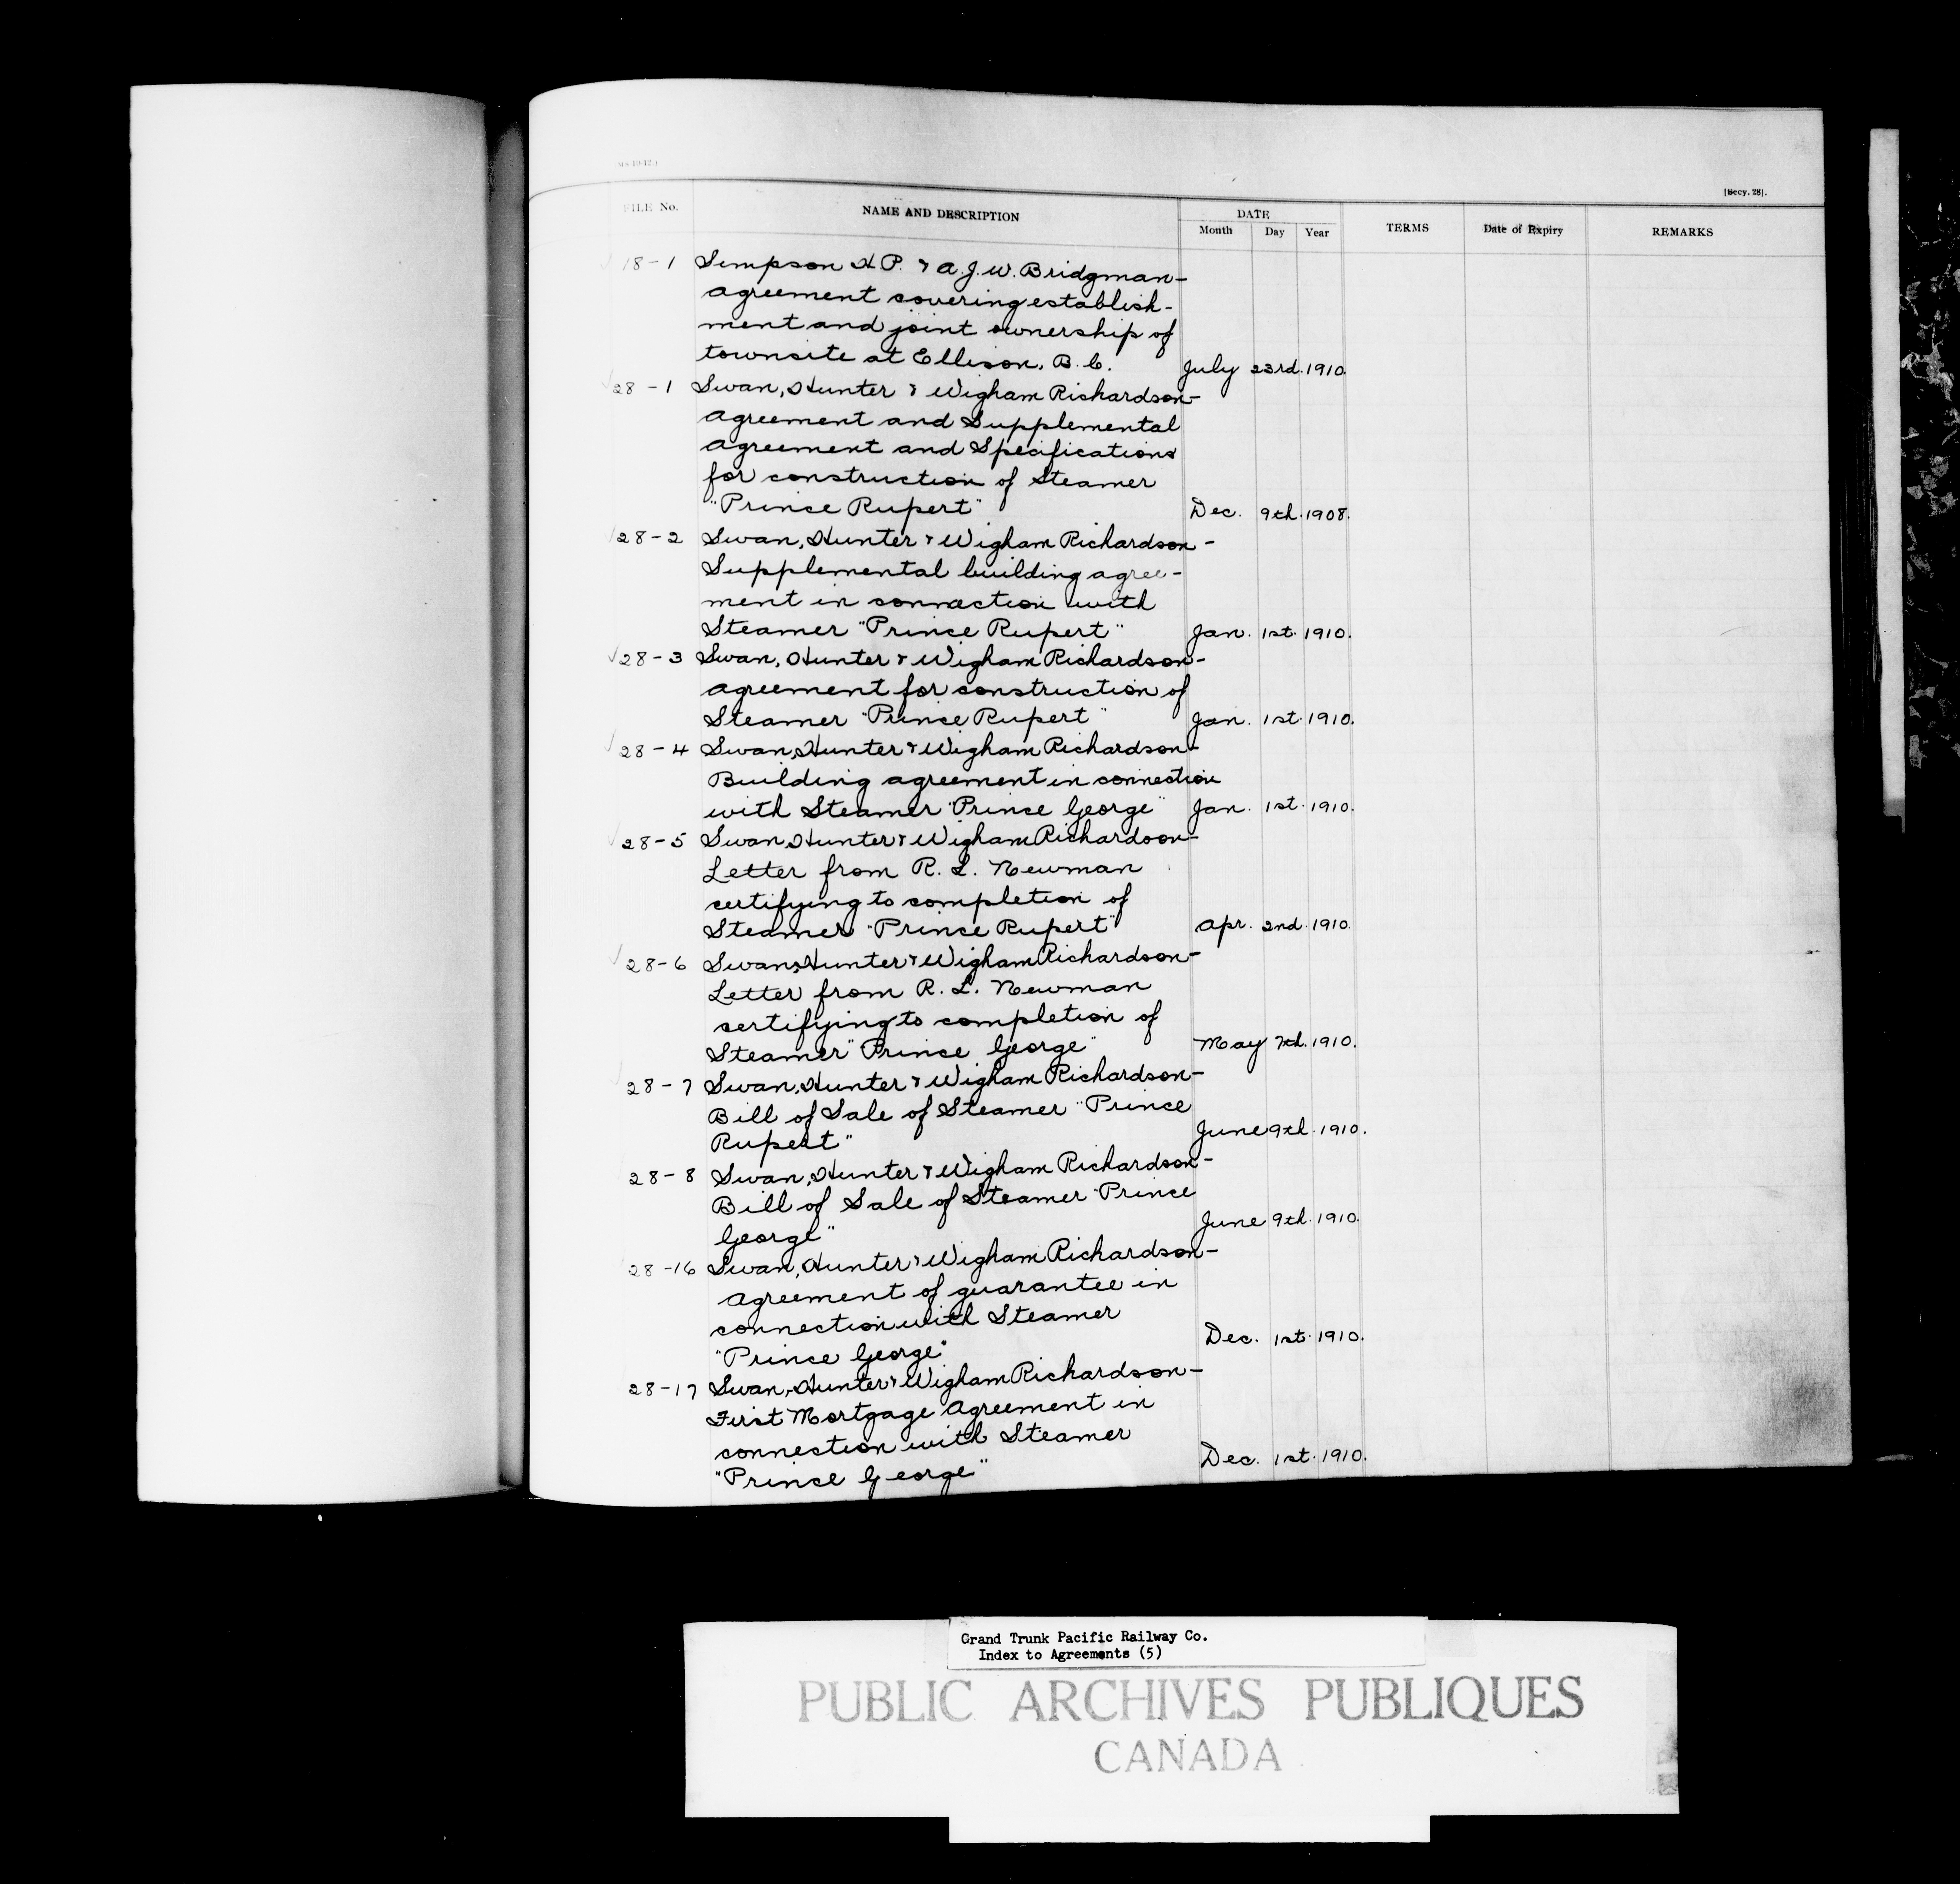 [Secy. 28].
FILE No. NAME AND DESCRIPTION DATE Month Day Year TERMS Date of Expiry REMARKS
18-1 Simpson H.P. & A.J.W. Bridgman-
Agreement covering establish-
ment and joint ownership of
townsite at Ellison, B.C. July 23rd. 1910.
28-1 Swan, Hunter & Wigham Richardson-
Agreement and Supplemental
Agreement and Specifications
for construction of Steamer
"Prince Rupert" Dec. 9th. 1908.
28-2 Swan, Hunter & Wigham Richardson-
Supplemental building agree-
ment in connection with
Steamer "Prince Rupert" Jan. 1st. 1910.
28-3 Swan, Hunter & Wigham Richardson-
Agreement for construction of
Steamer "Prince Rupert" Jan. 1st. 1910.
28-4 Swan, Hunter & Wigham Richardson-
Building agreement in connection
with Steamer "Prince George" Jan. 1st. 1910.
28-5 Swan, Hunter & Wigham Richardson-
Letter from R. L. Newman
certifying to completion of
Steamer "Prince Rupert" Apr. 2nd. 1910.
28-6 Swan, Hunter & Wigham Richardson-
Letter from R. L. Newman
certifying to completion of
Steamer "Prince George" May 7th. 1910.
28-7 Swan, Hunter & Wigham Richardson-
Bill of Sale of Steamer "Prince
Rupert" June 9th. 1910.
28-8 Swan, Hunter & Wigham Richardson-
Bill of Sale of Steamer "Prince
George" June 9th. 1910.
28-16 Swan, Hunter & Wigham Richardson-
Agreement of guarantee in
connection with Steamer
"Prince George" Dec. 1st. 1910.
28-17 Swan, Hunter & Wigham Richardson-
First Mortgage Agreement in
connection with Steamer
"Prince George" Dec. 1st. 1910.
Grand Trunk Pacific Railway Co.
Index to Agreements (5)
PUBLIC ARCHIVES PUBLIQUES
CANADA